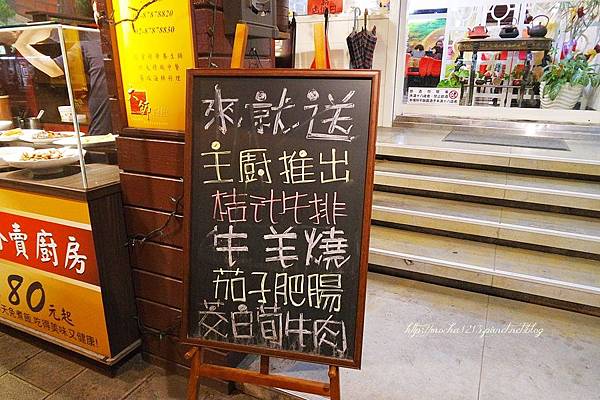 -87878820
2-87878829
來就送
主廚推出
桔汁牛排
牛羊燒
茄子肥腸
茭白筍牛肉
賣廚房
80元起
吃得美味又健康!
http://mocha1213.pixnet.net/blog